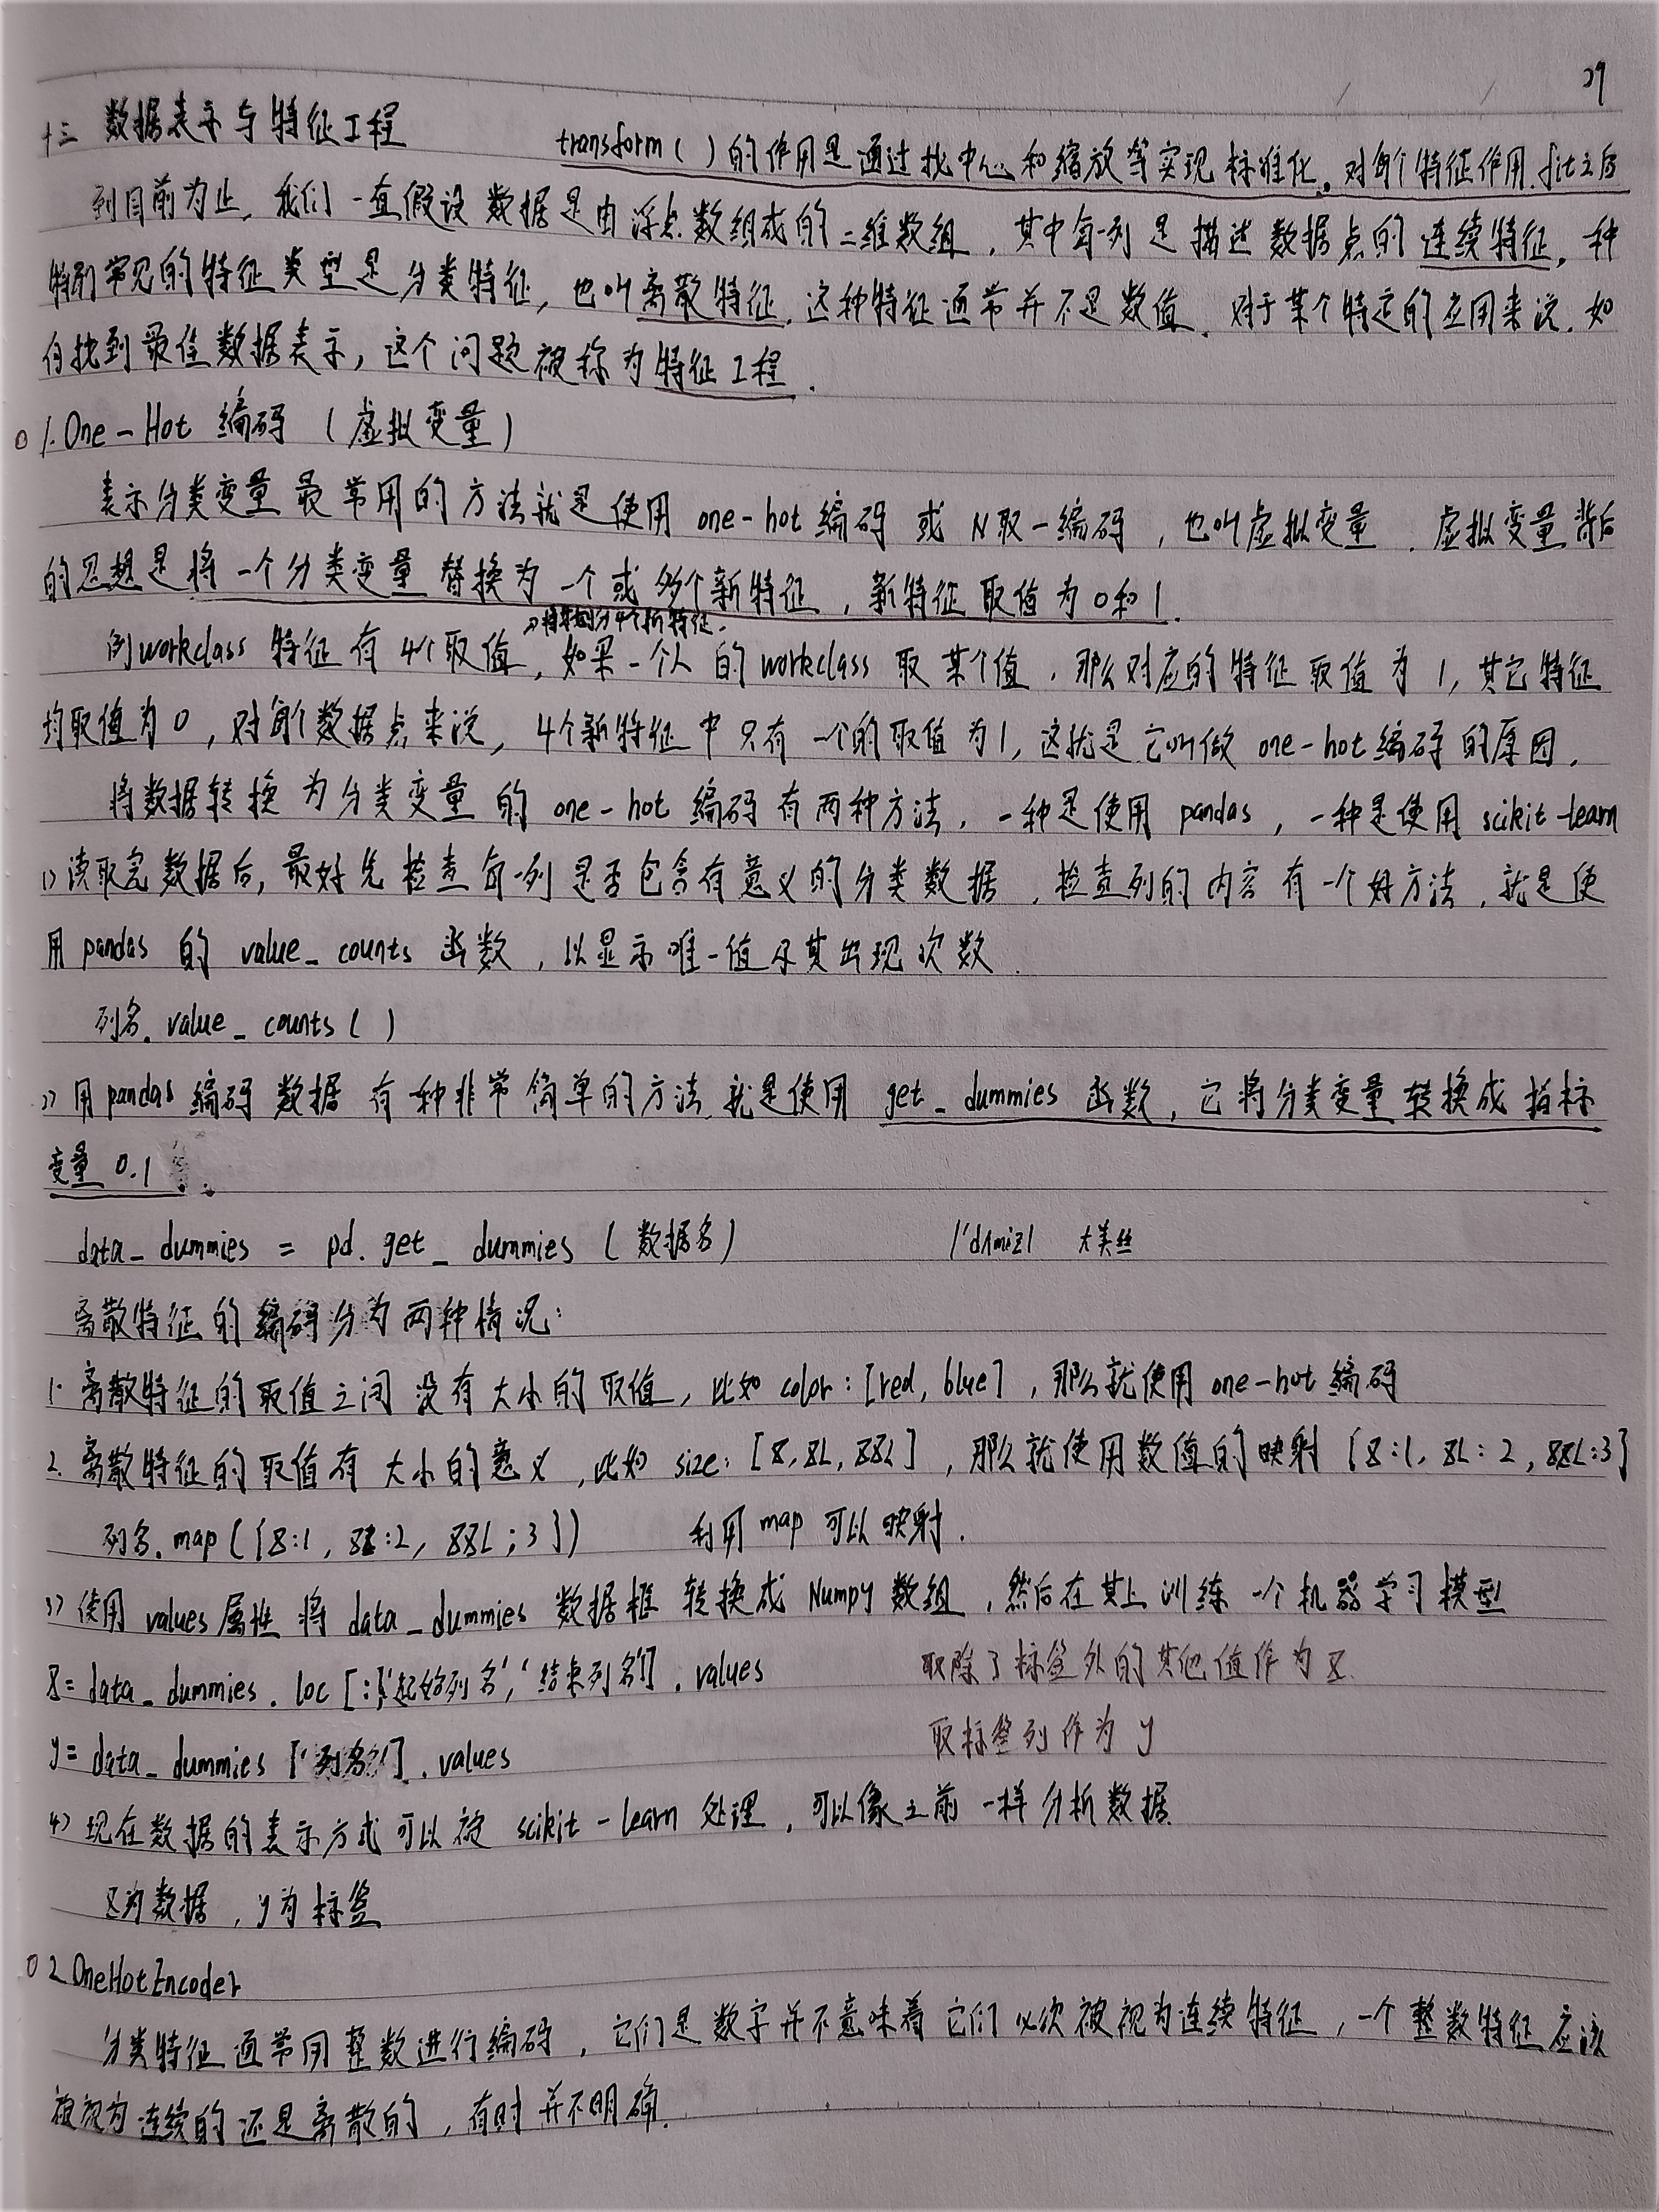 29
十三 数据表示与特征工程
transform（）的作用是通过找中心和缩放等实现标准化。对每个特征作用.fit之后
到目前为止，我们一直假设数据是由浮点数组成的二维数组，其中每一列是描述数据点的连续特征，一种
特别常见的特征类型是分类特征，也叫离散特征，这种特征通常并不是数值，对于某个特定的应用来说，如
何找到最佳数据表示，这个问题被称为特征工程.
1.One-Hot 编码（虚拟变量）
表示分类变量最常用的方法就是使用 one-hot 编码 或 N取一编码，也叫虚拟变量．虚拟变量背后
的思想是将一个分类变量替换为一个或多个新特征，新特征取值为0和1.
例workclass 特征有 4个取值，如果一个人的workclass 取某个值，那么对应的特征取值为 1，其它特征
均取值为 0，对每个数据点来说，4个新特征中只有一个的取值为1，这就是它叫做 one-hot编码的原因．
将数据转换为分类变量的 one-hot 编码有两种方法，一种是使用 pandas，一种是使用 scikit-learn
1) 读取完数据后，最好先检查每一列是否包含有意义的分类数据，检查列的内容有一个好方法，就是使
用 pandas 的 value_counts 函数，以显示唯一值及其出现次数．
列名. value_counts( )
2) 用 pandas 编码数据有一种非常简单的方法，就是使用 get_dummies 函数，它将分类变量转换成指标
变量 0.1
data_dummies = pd. get_dummies（数据名） /'dʌmiz/ 大美丝
离散特征的编码分为两种情况：
1. 离散特征的取值之间没有大小的取值，比如 color: [red, blue]，那么就使用 one-hot 编码
2. 离散特征的取值有大小的意义，比如 size: [X, XL, XXL]，那么就使用数值的映射 {X:1, XL: 2, XXL:3}
列名. map ({X:1, XL:2, XXL:3}) 利用 map 可以映射.
3) 使用 values 属性 将 data_dummies 数据框转换成 Numpy 数组，然后在其上训练一个机器学习模型
X= data_dummies. loc [:,'起始列名','结束列名']. values 取除了标签外的其他值作为 X.
y= data_dummies ['列名']. values 取标签列作为 y
4) 现在数据的表示方式可以被 scikit-learn 处理，可以像之前一样分析数据.
X为数据，y为标签
2.OneHotEncoder
分类特征通常用整数进行编码，它们是数字并不意味着它们必须被视为连续特征，一个整数特征应该
被视为连续的还是离散的，有时并不明确.